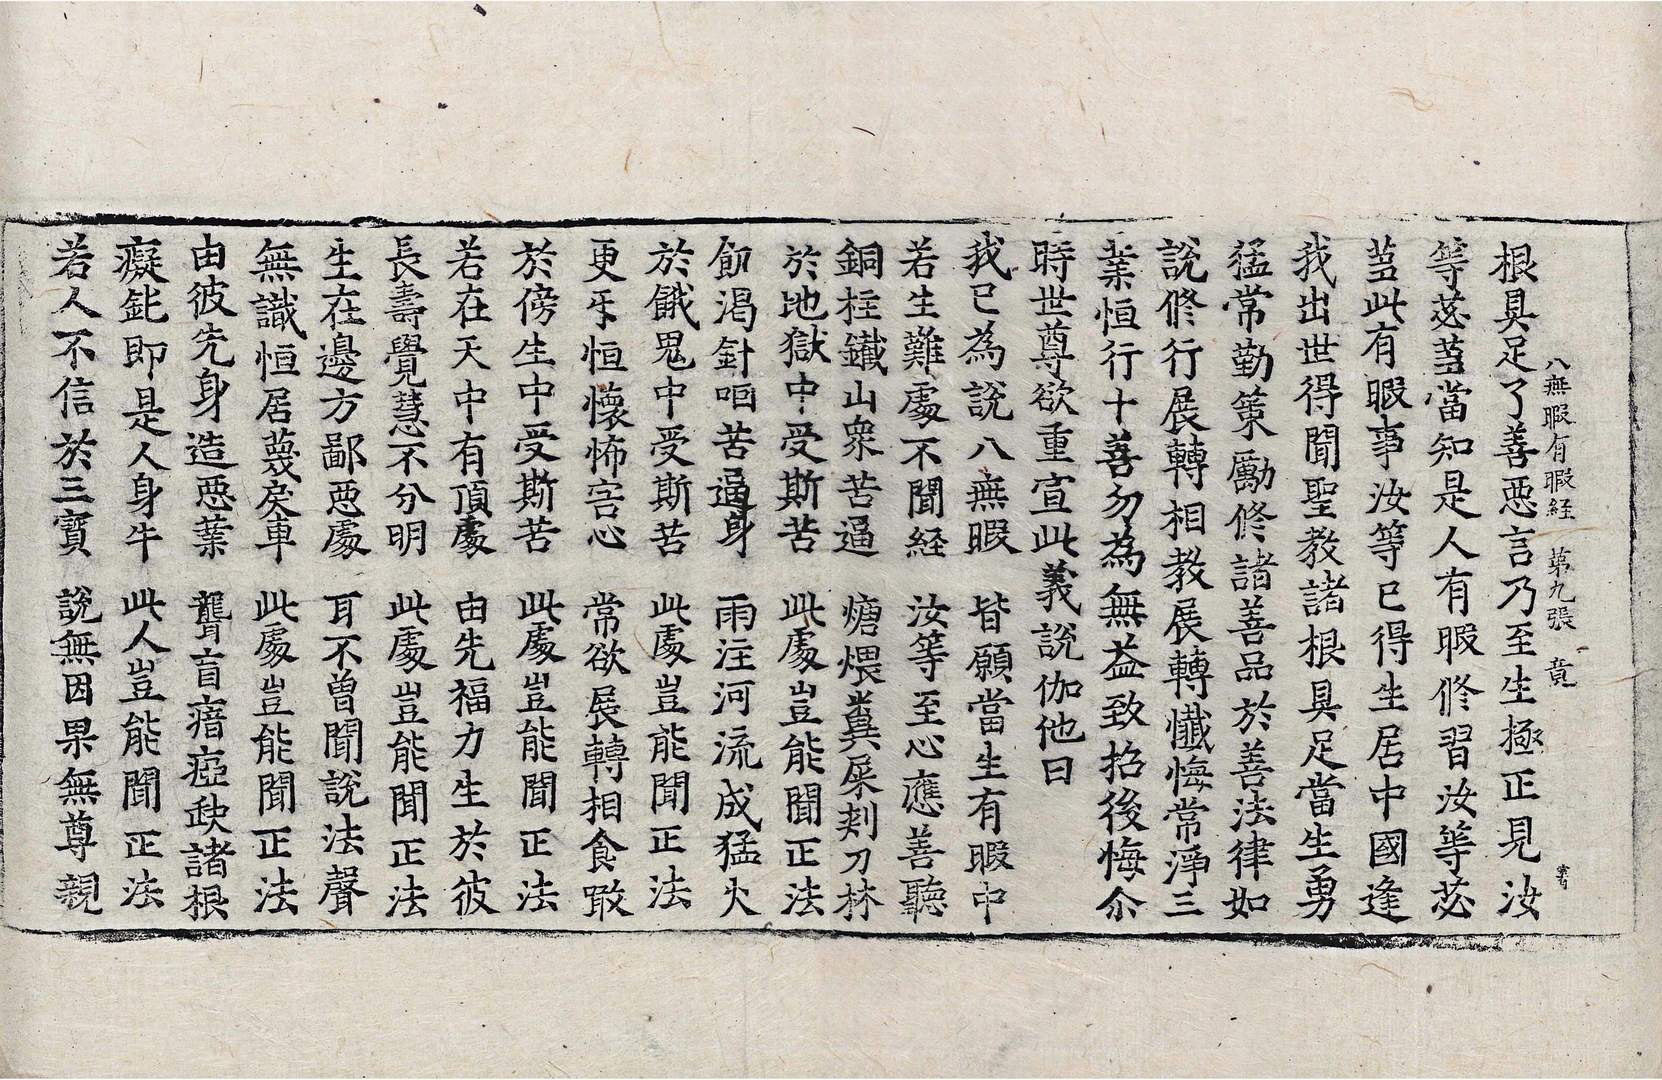 八無暇有暇経 第九張 竟
根具足了善惡言乃至生極正見汝
等苾蒭當知是人有暇修習汝等苾
蒭此有暇事汝等已得生居中國逢
我出世得聞聖教諸根具足當生勇
猛常勤策勵修諸善品於善法律如
說修行展轉相教展轉懺悔常淨三
業恒行十善勿為無益致招後悔尒
時世尊欲重宣此義說伽他曰
我已為說八無暇 皆願當生有暇中
若生難處不聞経 汝等至心應善聽
銅柱鐵山衆苦逼 煻煨糞屎剗刀林
於地獄中受斯苦 此處豈能聞正法
飢渴針咽苦逼身 雨注河流成猛火
於餓鬼中受斯苦 此處豈能聞正法
更牙恒懷怖害心 常欲展轉相食噉
於傍生中受斯苦 此處豈能聞正法
若在天中有頂處 由先福力生於彼
長壽覺慧不分明 此處豈能聞正法
生在邊方鄙惡處 耳不曾聞說法聲
無識恒居蔑戾車 此處豈能聞正法
由彼先身造惡業 聾盲瘖瘂缺諸根
癡鈍即是人身牛 此人豈能聞正法
若人不信於三寳 說無因果無尊親